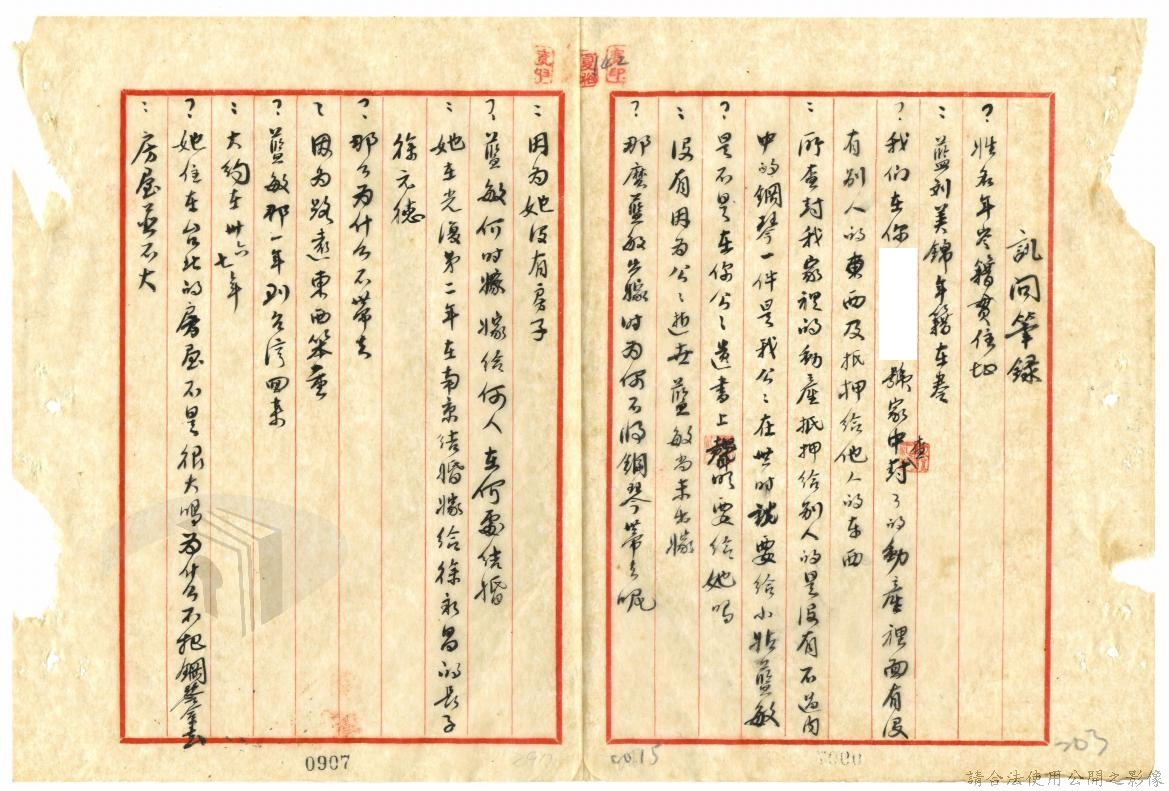 訊問筆錄
？姓名年岁籍貫住址
：藍刘美錦年籍在卷
？我们在你 號家中查封了的動產裡面有沒
有别人的東西及抵押给他人的东西
：所查封我家裡的動產抵押给别人的是没有不過内
中的鋼琴一件是我公公在世时說要给小姑藍敏
？是不是在你公公遺書上聲明要给她吗
：没有因为公公逝世藍敏尚未出嫁
？那麼藍敏出嫁时为何不将鋼琴带去呢
：因为她没有房子
？藍敏何时嫁嫁给何人在何處结婚
：她在光復第二年在南京结婚嫁给徐永昌的長子
徐元德
？那么为什么不带去
：因为路遠東西笨重
？藍敏那一年到台湾回来
：大約在卅六七年
？她住在台北的房屋不是很大嗎为什么不把鋼琴拿去
：房屋並不大
0907
2015
203
請合法使用公開之影像